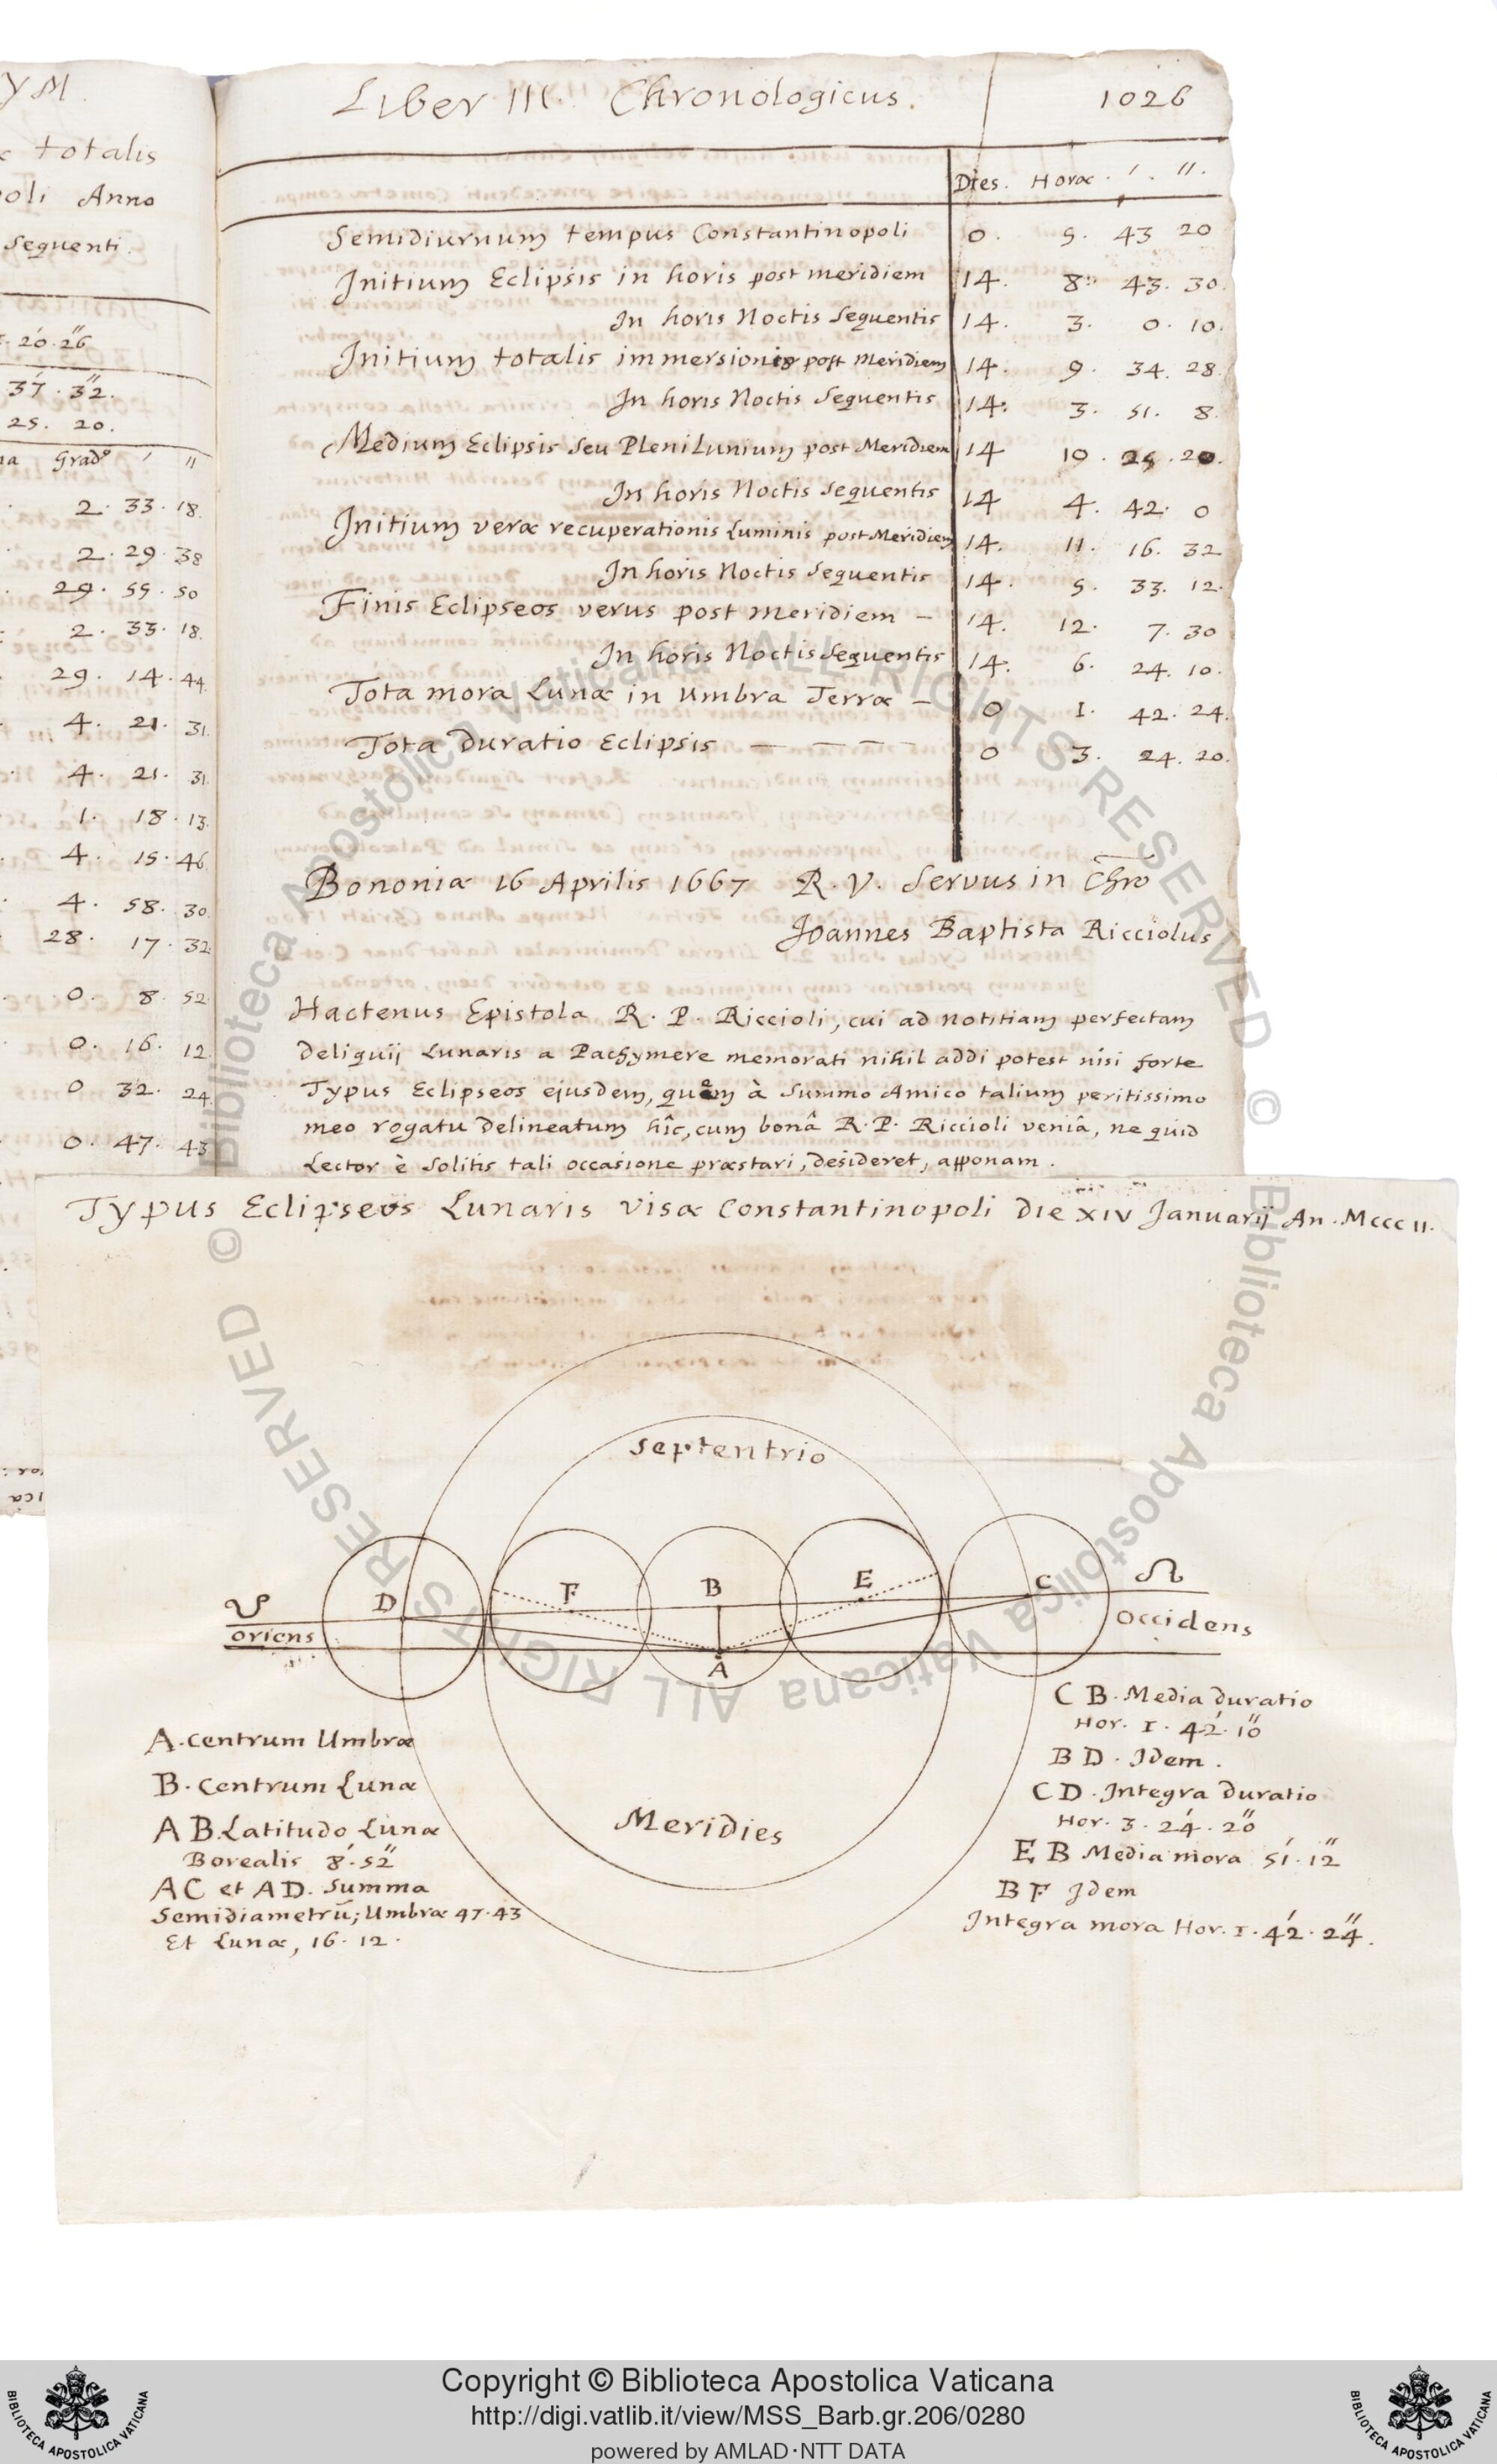 YM.
totalis
oli Anno
Sequenti.
20. 26
37. 32.
25. 20.
Grad. ′ ″
2. 33. 18.
2. 29. 38
29. 55. 50
2. 33. 18.
29. 14. 44.
4. 21. 31.
4. 21. 31.
1. 18. 13.
4. 15. 46
4. 58. 30.
28. 17. 32.
0. 8. 52.
0. 16. 12.
0 32. 24.
0. 47. 43
Liber III. Chronologicus. 1026
Dies. Horæ. ′. ″.
Semidiurnum tempus Constantinopoli 0. 5. 43 20
Initium Eclipsis in horis post meridiem 14. 8. 43. 30.
In horis Noctis Sequentis 14. 3. 0. 10.
Initium totalis immersionis post Meridiem 14. 9. 34. 28
In horis Noctis Sequentis 14. 3. 51. 8.
Medium Eclipsis seu Plenilunium post Meridiem 14 10. 25. 20.
In horis Noctis Sequentis 14 4. 42. 0
Initium veræ recuperationis Luminis post Meridiem 14. 11. 16. 32
In horis Noctis Sequentis 14. 5. 33. 12.
Finis Eclipseos verus post meridiem – 14. 12. 7. 30
In horis Noctis Sequentis 14. 6. 24. 10.
Tota mora Lunæ in Umbra Terræ – 0 1. 42. 24.
Tota duratio Eclipsis – – – – 0 3. 24. 20.
Bononiæ 16 Aprilis 1667 R. V. Servus in Chro
Joannes Baptista Ricciolus
Hactenus Epistola R. P. Riccioli, cui ad notitiam perfectam
deliquij Lunaris a Pachymere memorati nihil addi potest nisi forte
Typus Eclipseos ejusdem, quem à summo Amico talium peritissimo
meo rogatu delineatum hîc, cum bonâ R. P. Riccioli veniâ, ne quid
Lector è solitis tali occasione præstari, desideret, apponam.
Typus Eclipseos Lunaris visæ Constantinopoli die XIV Januarij An. MCCCII.
Septentrio
☋ D F B E C ☊
oriens Occidens
A
Meridies
A. centrum Umbræ
B. Centrum Lunæ
A B. Latitudo Lunæ
Borealis 8′. 52″
AC et AD. Summa
Semidiametrũ; Umbræ 47. 43
Et Lunæ, 16. 12.
C B. Media duratio
Hor. 1. 42′. 10″
B D. Idem.
C D. Integra duratio
Hor. 3. 24′. 20″
E B Media mora 51′. 12″
B F Idem
Integra mora Hor. 1. 42′. 24″.
Biblioteca Apostolica Vaticana ALL RIGHTS RESERVED ©
Biblioteca Apostolica Vaticana ALL RIGHTS RESERVED ©
BIBLIOTECA APOSTOLICA VATICANA
Copyright © Biblioteca Apostolica Vaticana
http://digi.vatlib.it/view/MSS_Barb.gr.206/0280
powered by AMLAD·NTT DATA
BIBLIOTECA APOSTOLICA VATICANA